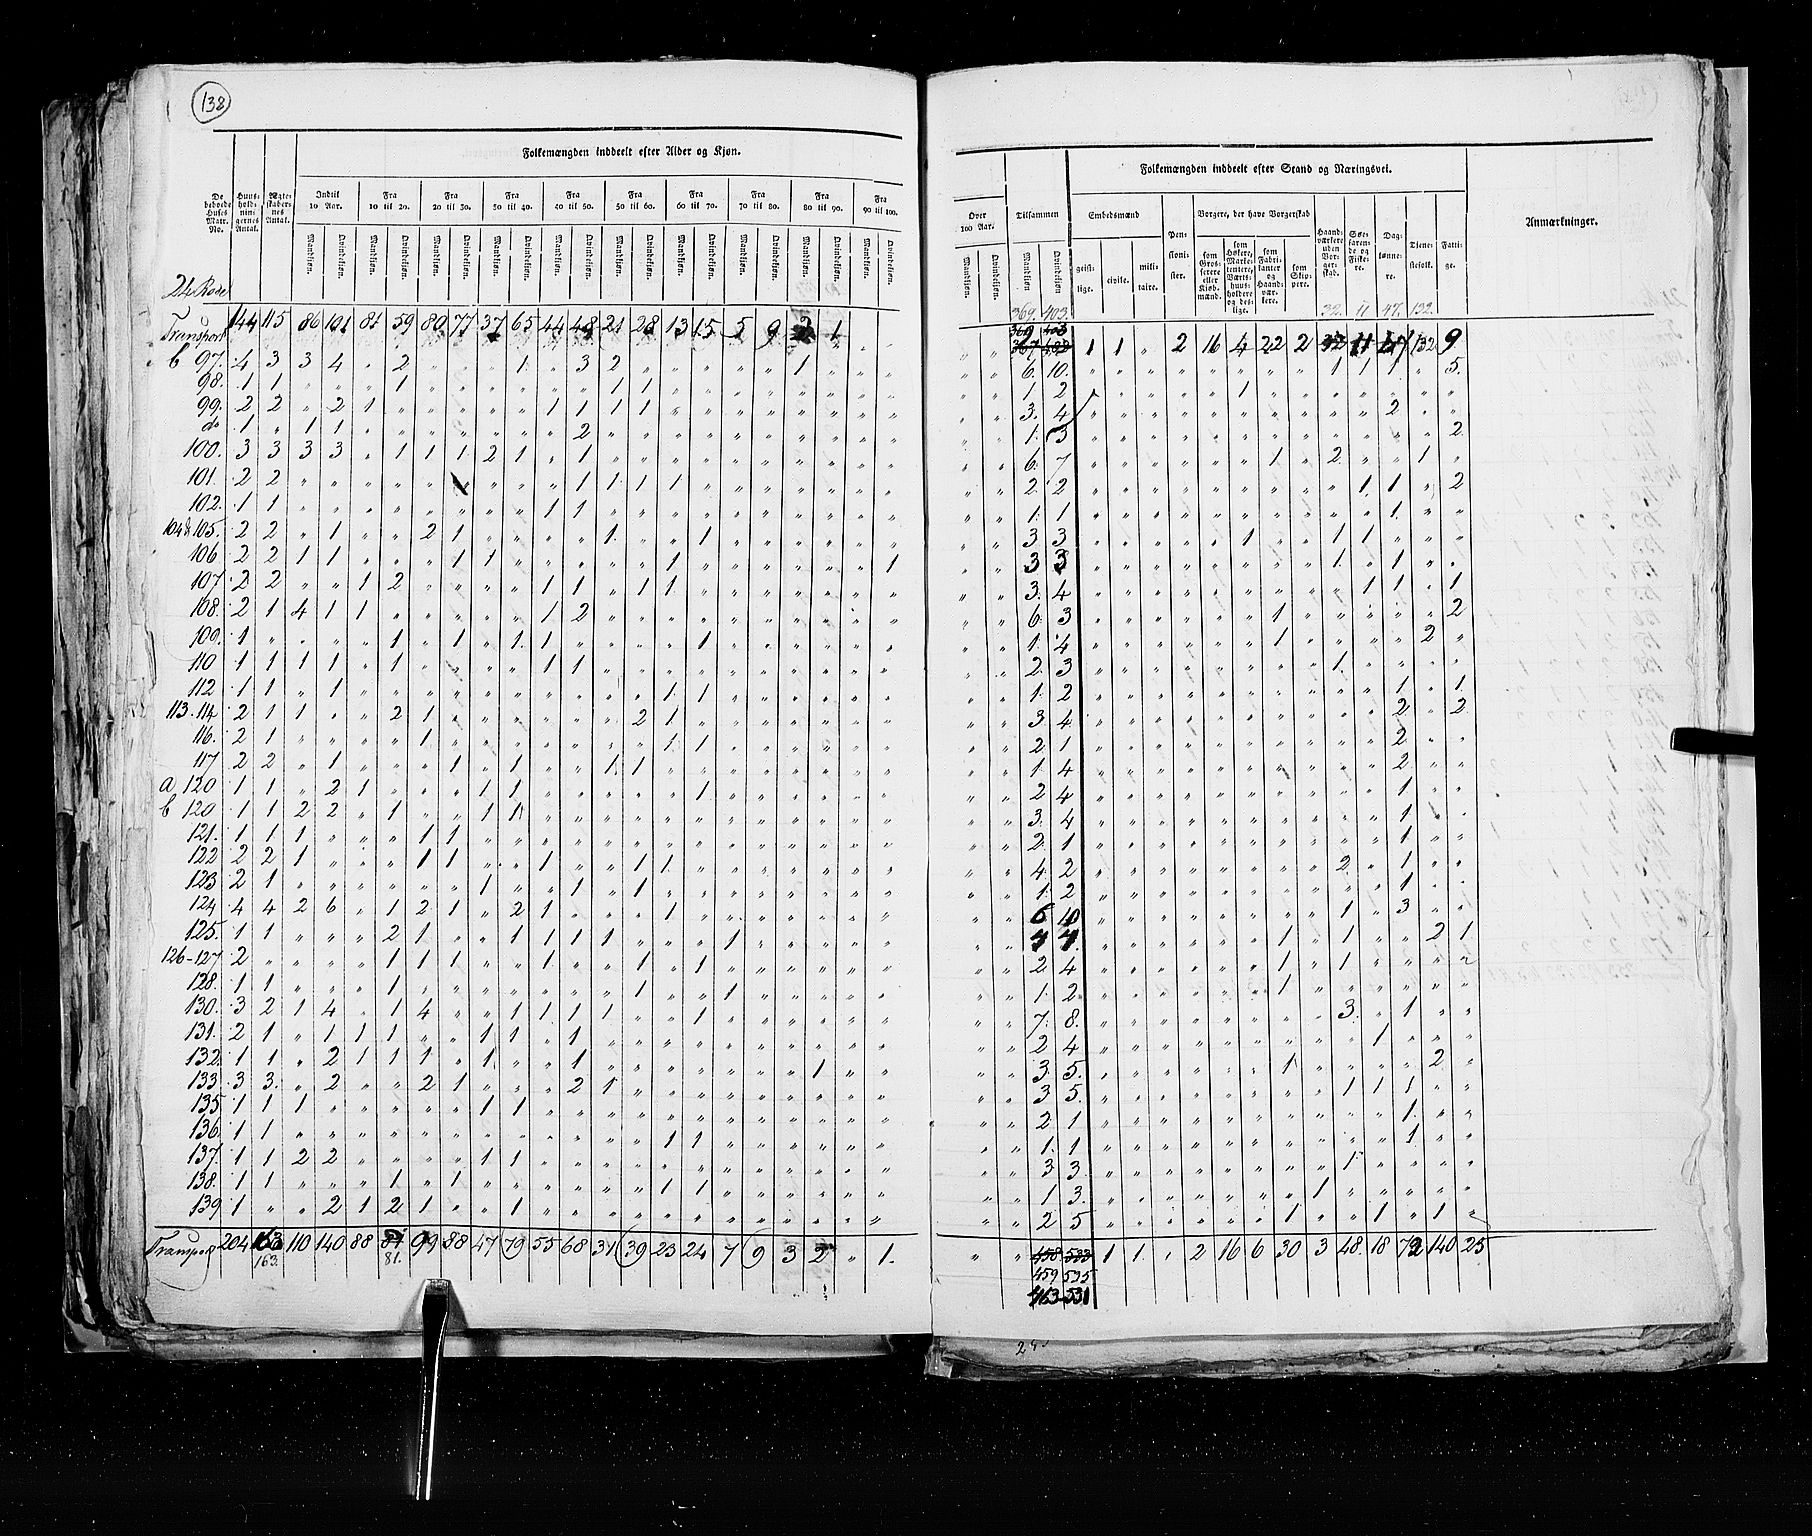 138
Folkemængden inddeelt efter Alder og Kjøn.
De beboede Huses Matr. No. | Huus-hold-nin-gernes Antal. | Ægte-skaber-nes Antal. | Indtil 10 Aar. | Fra 10 til 20. | Fra 20 til 30. | Fra 30 til 40. | Fra 40 til 50. | Fra 50 til 60. | Fra 60 til 70. | Fra 70 til 80. | Fra 80 til 90. | Fra 90 til 100.
Mandkjøn. Qvindekjøn. Mandkjøn. Qvindekjøn. Mandkjøn. Qvindekjøn. Mandkjøn. Qvindekjøn. Mandkjøn. Qvindekjøn. Mandkjøn. Qvindekjøn. Mandkjøn. Qvindekjøn. Mandkjøn. Qvindekjøn. Mandkjøn. Qvindekjøn. Mandkjøn. Qvindekjøn.
24 Rode
Transport 144 115 86 101 81 59 80 77 37 65 44 48 21 28 13 15 5 9 2 1 " "
b 97. 4 3 3 4 " 2 " " " 1 " 3 2 " " " " " 1 " " "
98. 1 1 " " " 1 " " " " " " 1 1 " " " " " " " "
99. 2 2 " 2 1 " " " " " 1 1 1 1 " " " " " " " "
do 1 " 1 1 " " " " " " " 2 " " " " " " " " " "
100. 3 3 3 3 " 1 1 1 2 1 " 1 " " " " " " " " " "
101. 2 2 " " " " " " " " " 1 1 1 1 " " " " " " "
102. 1 1 " " " " " " " " 1 1 " " " " " " " " " "
104 & 105. 2 2 " 1 " " 2 1 " " " " 1 " " 1 " " " " " "
106 2 2 1 1 " " " 1 1 " " " " " 1 " " " " " " 1
107 2 2 " " 1 2 " " " " 1 1 " 1 1 " " " " " " "
108. 2 1 4 1 1 " " " " " 1 2 " " " " " " " " " "
109. 1 " " " " 1 " 1 " 1 1 " " " " 1 " " " " " "
110 1 1 1 1 " 1 " " " " 1 1 " " " " " " " " " "
112 1 1 " 1 " " " " " " " " " " 1 1 " " " " " "
113. 114 2 1 1 " " 2 1 " " " " " " 2 1 " " " " " " "
116. 2 1 " " " " 1 " " " " " " " 1 1 " " " " " "
117 2 2 " 1 " " " 1 " 1 " " 1 1 " " " " " " " "
a 120 1 1 " 2 1 " " " 1 1 " " " " " 1 " " " " " "
b 120 1 1 2 2 " 1 " " 1 1 " " " " " " " " " " " "
121. 1 1 1 " " " 1 1 " " " " " " " " " " " " " "
122 2 2 1 " " " 1 1 " " 1 " " 1 1 " " " " " " "
123 2 1 " " " " " " 1 " " 1 " 1 " " " " " " " "
124 4 4 2 6 " 1 2 1 " 2 1 " " " 1 " " " " " " "
125. 1 1 " " " 2 1 " " 1 1 1 1 " " " 1 " " " " "
126-127 2 " " " " 1 1 1 " " 1 " " 1 " 1 " " " " " "
128. 1 1 " " " 1 " " " " " " " 1 " " 1 " " " " "
130. 3 2 1 4 " 1 4 " " 1 1 1 1 " " 1 " " " " " "
131. 2 1 " 1 1 1 " " 1 1 " 1 " " " " " " " " " "
132. 1 1 " 2 1 1 1 " 1 " " 1 " " " " " " " 1 " "
133 3 3. " 2 " " 2 1 " " " 2 1 " " " " " " " " "
135 1 1 1 " " " " " 1 1 " " " " " " " " " " " "
136. 1 1 " " " " " " " " " " " " 1 1 " " " " " "
137. 1 1 2 2 " " " " 1 1 " " " " " " " " " " " "
138. 1 1 " " " 1 " 1 " " " " " " 1 1 " " " " " "
139 1 " " 2 1 2 1 " " 1 " " " " " " " " " " " "
Transport 204 163 110 140 88 99 88 47 79 55 68 31 39 23 24 7 9 3 2 " 1.
163. 81.
Folkemængden inddeelt efter Stand og Næringsvei.
Over 100 Aar. | Tilsammen | Embedsmænd | Pen-sioni-ster. | Borgere, der have Borgerskab | Haand-værkere uden Bor-ger-skab. | Søe-faren-de og Fiske-re. | Dag-lønne-re. | Tiene-stefolk. | Fatti-ge. | Anmærkninger.
Mandkjøn. Qvindekjøn. Mandkjøn. Qvindekjøn. geist-lige. civile. mili-taire. som Gros-serere eller Kjøb-mænd. som Høkere, Marke-tentere, Værts-huus-holdere og des-lige. som Fabri-kanter og Haand-vær-kere. som Skip-pere.
369. 403. 32. 11 47. 132.
369 403
" " 367 402 1 1 " 2 16 4 22 2 32 11 47 132 9
" " 6. 10. " " " " " " " " 1 1 1 " 5.
" " 1 2 " " " " " 1 " " " " " " "
" " 3. 4 " " " " " " " " " " 2 " "
" " 1. 3 " " " " " " " " " " " " 2
" " 6. 7 " " " " " " 1 " 2 " " 1 "
" " 2. 2 " " " " " " " " " 1 1 " 2
" " 1. 1 " " " " " " " " " " 1. " "
" " 3 3 " " " " " 1 " " 1 1 " " "
" " 3 3 " " " " " " " " 1. " 1 " "
" " 3. 4 " " " " " " " " " 1 1 " 1
" " 6. 3 " " " " " " 1 " " " " " 2
" " 1. 4 " " " " " " 1 " " " " 2 "
" " 2. 3 " " " " " " " " 1. " " " "
" " 1. 2 " " " " " " " " " " 1 " 1
" " 3. 4 " " " " " " " " " " 2 " 2
" " 2. 1 " " " " " " " " " " 2 " "
" " 1. 4 " " " " " " " " " " 2 " "
" " 2 4 " " " " " " " " " " 1 " "
" " 3. 4 " " " " " " " " " " 1 " "
" " 2. 1 " " " " " " " " " " 1 " "
" " 4. 2 " " " " " " " " 2 " 1 " "
" " 1. 2 " " " " " " " " " " 1 " "
" " 6 10 " " " " " " " " 1 " 3 " "
" " 4 7. " " " " " " 1 " 1 " " 2 1
" " 2 4 " " " " " " 1 " 1 " " " "
" " 1. 2. " " " " " " 1 " " " " " "
" " 7. 8. " " " " " " " " 3. " 1 " "
" " 2 4 " " " " " " " " " 1 " " "
" " 3. 5. " " " " " " 1 " " " " 2 "
" " 3 5. " " " " " " " " 1 1 1 " "
" " 2. 1 " " " " " " " " " " 1. " "
" " 1. 1 " " " " " " " " " " 1 " "
" " 3 3. " " " " " " " " 1 " " " "
" " 1 3. " " " " " " " 1 " " " " "
" " 2 5 " " " " " " 1 " " " 1 " 1 "
" " 458 533 1 1. " 2 16 6 30 3 48. 18 72 140 25
459 535
463 531